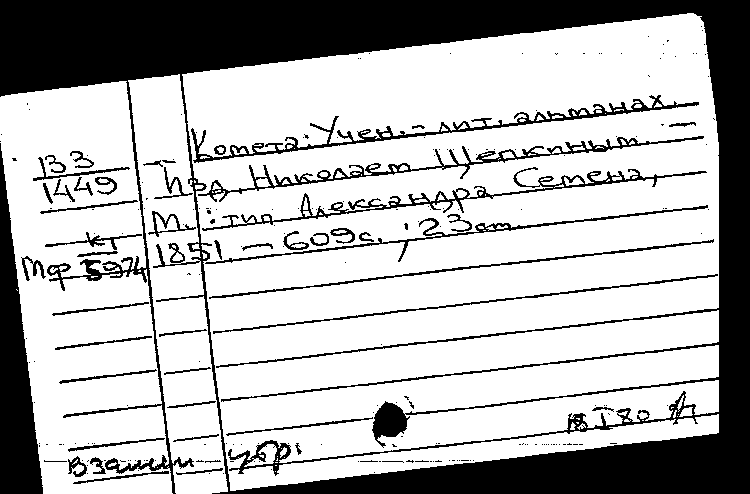 133
1449
Комета: Учен.-лит. альманах,
Изд. Николаем Щепкиным. —
М.: тип Александра Семена,
1851. — 609 с.; 23 см.
Мф КТ
5974
18 I 80
Взамен утр.